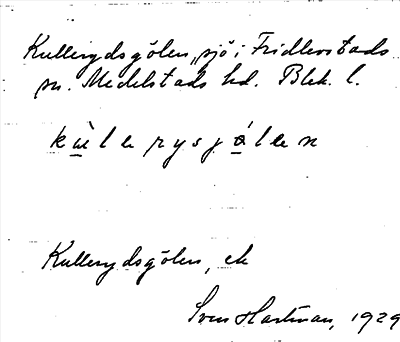 Kullerydsgölen, sjö i Fridlevstads
sn. Medelstads hd. Blek. l.
kùlerysjǿlen
Kullerydsgölen, ek
Sven Hartman, 1929